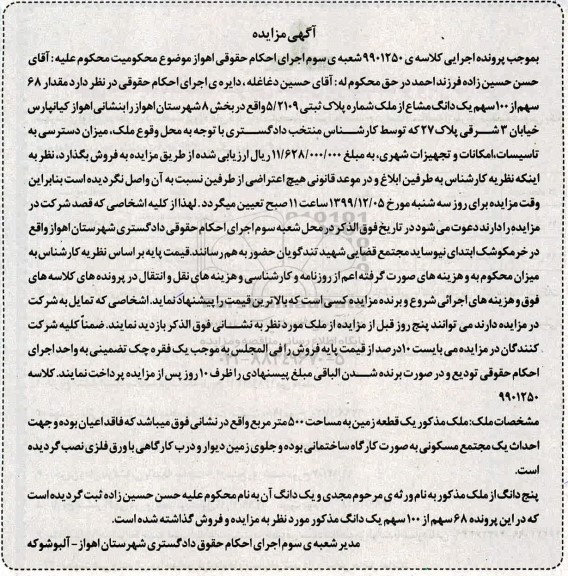 آگهی مزایده
بموجب پرونده اجرایی کلاسه ی ۹۹۰۱۲۵۰ شعبه ی سوم اجرای احکام حقوقی اهواز موضوع محکومیت محکوم علیه : آقای
حسن حسین زاده فرزند احمد در حق محکوم له : آقای حسین دغاغله ، دایره ی اجرای احکام حقوقی در نظر دارد مقدار ۶۸
سهم از ۱۰۰ سهم یک دانگ مشاع از ملک شماره پلاک ثبتی ۵/۲۱۰۹ واقع در بخش ۸ شهرستان اهواز را بنشانی اهواز کیانپارس
خیابان ۳ شرقی پلاک ۲۷ که توسط کارشناس منتخب دادگستری با توجه به محل وقوع ملک، میزان دسترسی به
تاسیسات،امکانات و تجهیزات شهری، به مبلغ ۱۱/۶۲۸/۰۰۰/۰۰۰ ریال ارزیابی شده از طریق مزایده به فروش بگذارد، نظر به
اینکه نظریه کارشناس به طرفین ابلاغ و در موعد قانونی هیچ اعتراضی از طرفین نسبت به آن واصل نگردیده است بنابراین
وقت مزایده برای روز سه شنبه مورخ ۱۳۹۹/۱۲/۰۵ ساعت ۱۱ صبح تعیین میگردد . لهذا از کلیه اشخاصی که قصد شرکت در
مزایده را دارند دعوت می شود در تاریخ فوق الذکر در محل شعبه سوم اجرای احکام حقوقی دادگستری شهرستان اهواز واقع
در خرمکوشک ابتدای نیوساید مجتمع قضایی شهید تندگویان حضور به هم رسانند.قیمت پایه بر اساس نظریه کارشناس به
میزان محکوم به و هزینه های صورت گرفته اعم از روزنامه و کارشناسی و هزینه های نقل و انتقال در پرونده های کلاسه های
فوق و هزینه های اجرائی شروع و برنده مزایده کسی است که بالاترین قیمت را پیشنهاد نماید. اشخاصی که تمایل به شرکت
در مزایده دارند می توانند پنج روز قبل از مزایده از ملک مورد نظر به نشانی فوق الذکر بازدید نمایند. ضمناً کلیه شرکت
کنندگان در مزایده می بایست ۱۰ درصد از قیمت پایه فروش را فی المجلس به موجب یک فقره چک تضمینی به واحد اجرای
احکام حقوقی تودیع و در صورت برنده شدن الباقی مبلغ پیسنهادی را ظرف ۱۰ روز پس از مزایده پرداخت نمایند. کلاسه
۹۹۰۱۲۵۰
مشخصات ملک: ملک مذکور یک قطعه زمین به مساحت ۵۰۰ متر مربع واقع در نشانی فوق میباشد که فاقد اعیان بوده و جهت
احداث یک مجتمع مسکونی به صورت کارگاه ساختمانی بوده و جلوی زمین دیوار و درب کارگاهی با ورق فلزی نصب گردیده
است.
پنج دانگ از ملک مذکور به نام ورثه ی مرحوم مجدی و یک دانگ آن به نام محکوم علیه حسن حسین زاده ثبت گردیده است
که در این پرونده ۶۸ سهم از ۱۰۰ سهم یک دانگ مذکور مورد نظر به مزایده و فروش گذاشته شده است.
مدیر شعبه ی سوم اجرای احکام حقوق دادگستری شهرستان اهواز - آلبوشوکه